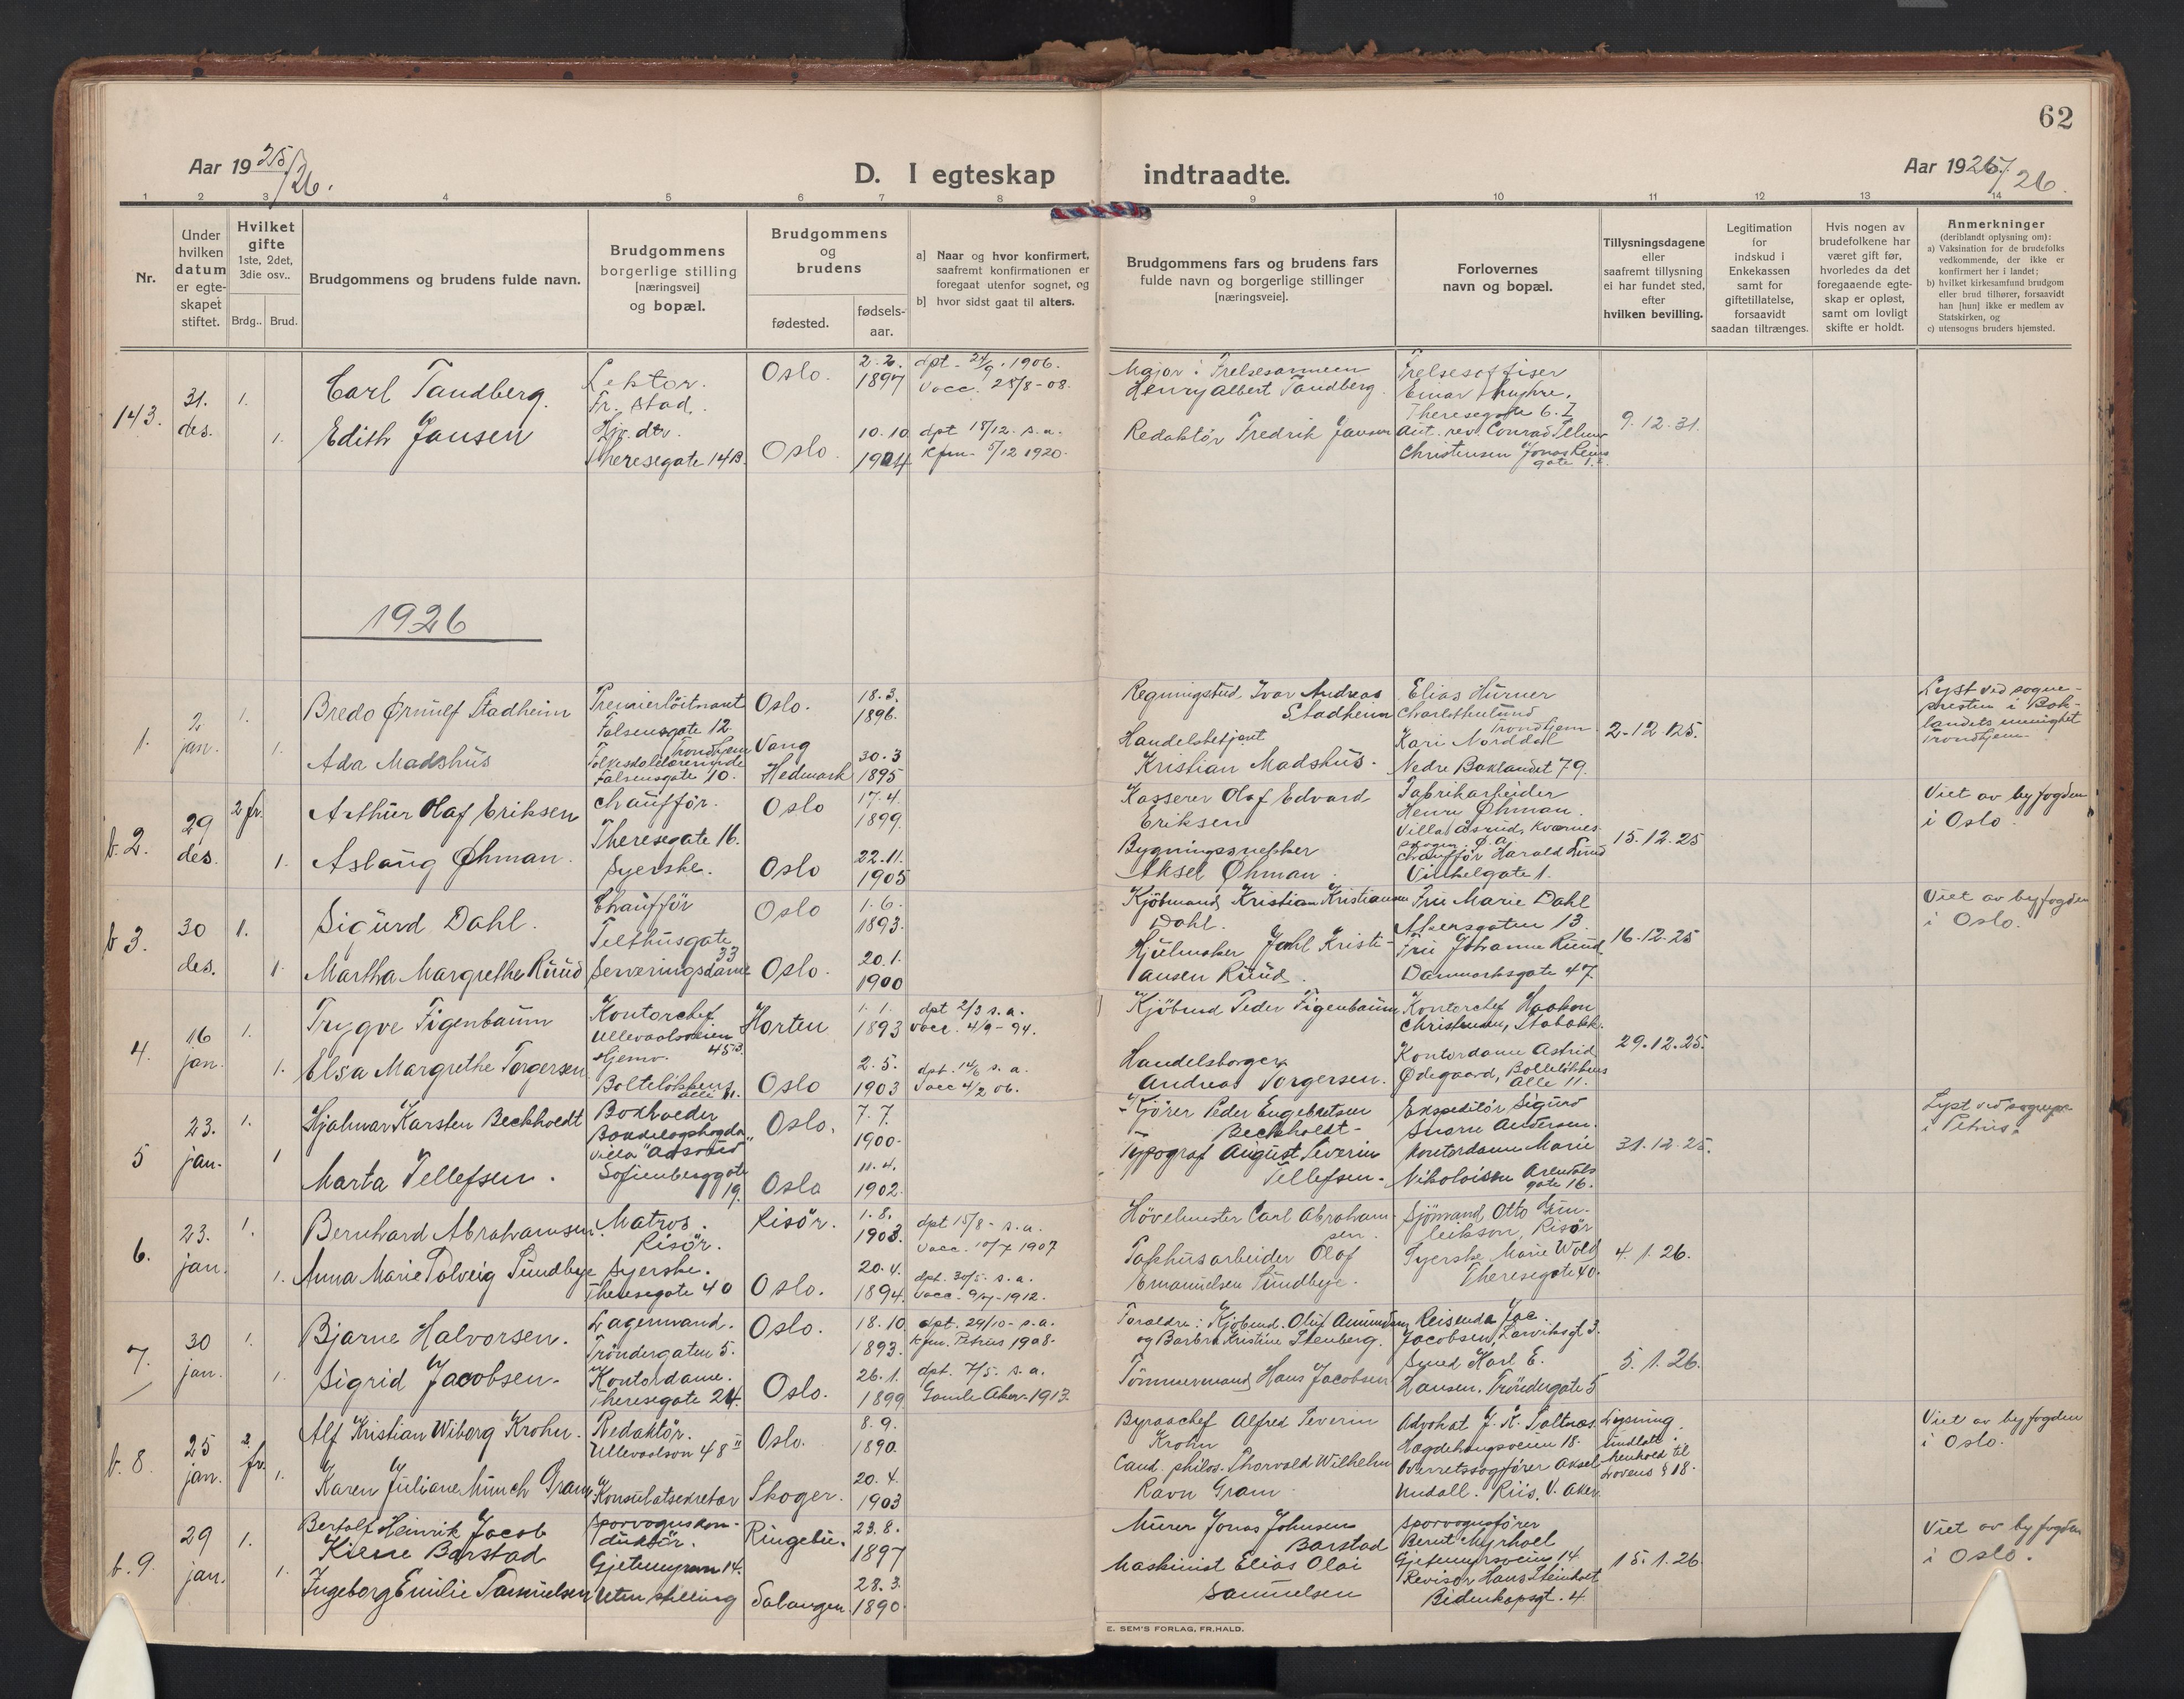 62
Aar 1925/26.
D. I egteskap indtraadte.
Aar 1925/26.
1 2 3 4 5 6 7 8 9 10 11 12 13 14
Nr.
Under hvilken datum er egteskapet stiftet.
Hvilket gifte 1ste, 2det, 3die osv..
Brdg.. Brud.
Brudgommens og brudens fulde navn.
Brudgommens borgerlige stilling [næringsvei] og bopæl.
Brudgommens og brudens
fødested.
fødsels-aar.
a] Naar og hvor konfirmert, saafremt konfirmationen er foregaat utenfor sognet, og
b] hvor sidst gaat til alters.
Brudgommens fars og brudens fars fulde navn og borgerlige stillinger [næringsveie].
Forlovernes navn og bopæl.
Tillysningsdagene eller saafremt tillysning ei har fundet sted, efter hvilken bevilling.
Legitimation for indskud i Enkekassen samt for giftetillatelse, forsaavidt saadan tiltrænges.
Hvis nogen av brudefolkene har været gift før, hvorledes da det foregaaende egteskap er opløst, samt om lovligt skifte er holdt.
Anmerkninger (deriblandt oplysning om):
a) Vaksination for de brudefolks vedkommende, der ikke er konfirmert her i landet;
b) hvilket kirkesamfund brudgom eller brud tilhører, forsaavidt han [hun] ikke er medlem av Statskirken, og
c) utensogns bruders hjemsted.
143. 31. des. 1. 1.
Carl Tandberg.
Lektor. Fr. stad.
Oslo. 2.2. 1897
dpt. 24/9. 1906.
vacc. 28/8-08.
Major i Frelsesarmeen
Henry Albert Tandberg
Frelsesoffiser
Einar
Theresegate 6. I
9.12.31.
Edith Jansen
Hjg. dtr.
Theresegate 14B.
Oslo. 10.10 1904
dpt 18/12. s.a.
Kfm. 5/12 1920.
Redaktör Fredrik Jansen
Aut. rev. Conrad
Christensen Jonas Reins gate 1.
1926
1. 2 jan. 1. 1.
Bredo Ørnulf Stadheim
Premierlöitnant
Falsensgate 12
Trondhjem
Oslo. 18.3. 1896.
Ivar Andreas
Stadheim
Elias Hürner
Charlottenlund
Trondhjem
2-12.125.
Lyst ved sogne-
presten i Bak-
landets menighet
Trondhjem.
Ada Madshus
Folkeskolelærerinde
Falsensgate 10.
Vang Hedmark 30.3 1895
Handelsbetjent
Kristian Madshus.
Kari Norddal
Nedre Baklandet 79.
b. 2. 29 des. 2 fr. 1.
Arthur Olaf Eriksen
chauffør.
Theresegate 16.
Oslo 17.4. 1899.
Kasserer Olaf Edvard
Eriksen
Fabrikarbeider
Henry Øhman.
Villa Åsrud, Kværnes-
skogen. Ø.A.
15.12.25
Viet av byfogden
i Oslo.
Aslaug Øhman.
Syerske.
Oslo 22.11. 1905
Bygningssnekker
Aksel Øhman.
chauffør Harald Lund
Vinkelgate 1.
b 3. 30 des. 1. 1.
Sigurd Dahl.
Chauffør
Telthusgate 33
Oslo 1.6. 1893.
Kjöbmand Kristian Kristiansen
Dahl.
Fru Marie Dahl
Akersgaten 13
16.12.25
Viet av byfogden
i Oslo.
Martha Margrethe Ruud
Serveringsdame
Oslo. 20.1. 1900
Hjulmaker Johl Kristi-
ansen Ruud.
Fru Johanne Ruud.
Danmarksgate 47.
4. 16 jan. 1. 1.
Trygve Figenbaum
Kontorchef
Ullevaalsveien 45 3.
Horten 1.1. 1893
dpt 2/3 s.a.
vacc. 4/9-94.
Kjöbmd Peder Figenbaum
Kontorchef Haakon
Christensen, Stabekk.
29.12.25.
Elsa Margrethe Torgersen
Hjemv.
Bolteløkkens alle 11.
Oslo 2.5. 1903
dpt. 14/6 s.a.
vacc 4/2 06.
Handelsborger
Andreas Torgersen.
Kontordame Astrid
Ødegaard, Bolteløkkens
Alle 11.
5 23. jan. 1. 1
Hjalmar Karsten Beckholdt
Bokholder
Bondelagshagda
Villa "Adsotud"
Oslo. 7.7. 1900.
Kjører Peder Engebretsen
Beckholdt-
Ekspeditör Sigurd
Snarre Andersen.
31.12.25.
Lyst ved sognepr.
i Petrus.
Marta Tellefsen.
Sofienberggate 19.
Oslo 11.4. 1902.
Typograf August Severin
Tellefsen.
Kontordame Marie
Nikolaisen Arendals
gate 16.
6. 23. jan. 1. 1.
Bernhard Abrahamsen.
Matros.
Risör.
Risör. 1.8. 1903.
dpt 15/8- s.a.
vacc. 10/7 1907
Hövelmester Carl Abraham-
sen.
Sjömand Otto Gun-
leikson, Risör
4.1.26.
Anna Marie Solveig Sundbye
Syerske.
Theresegate 40
Oslo. 20.4. 1894.
dpt. 30/5. s.a.
vacc. 9/4-1912.
Pakhusarbeider Olaf
Emanuelsen Sundbye.
Syerske Marie Wold
Theresegate 40.
7. 30 jan. 1. 1.
Bjarne Halvorsen.
Lagermand.
Tröndergaten 5.
Oslo. 18.10 1893.
dpt. 29/10- s.a.
Kfm. Petrus 1908.
Foreldre: Kjöbmd. Oluf Amundsen
og Barbra Kristine Stenberg.
Reisende Jac.
Jacobsen, Larviksgt 3.
5.1.26.
Sigrid Jacobsen.
Kontordame.
Theresegate 24.
Oslo. 26.1. 1899
dpt. 7/5. s.a.
Gamle Aker-1913.
Tömmermand Hans Jacobsen
Smed Karl E.
Hansen. Tröndergate 5
b. 8. 25 jan. 2. fr. 1.
Alf Kristian Wiborg Krohn.
Redaktör.
Ullevaalsvn 48 II
Oslo. 8.9. 1890.
Byraachef Alfred Severin
Krohn
Advokat J. K. Saltnes
Hagdehaugsveien 18.
Lysning
undlatt i
henhold til
Lovens § 18.
Viet av byfogden
i Oslo.
Karen Juliane Münch Gram
Konsulatsekretær
Skoger. 20.4. 1903
Cand. philos. Thorvald Wilhelm
Ravn Gram.
Overretssagfører Aksel
Undall. Riis, V. Aker
b. 9. 29 jan. 1. 1.
Bertolf Heinrik Jacob
Kiese Barstad
Sporvognskon-
duktör.
Gjetemyrsvn 14.
Ringebu. 23.8. 1897
Murer Jonas Johnsen
Barstad
Sporvognsfører
Bernt Myrhoel
Gjetemyrsveien 14
15.1.26.
Viet av byfogden
i Oslo.
Ingeborg Emilie Samuelsen
Uten stilling
Salangen 28.3. 1890.
Maskinist Elias Olai
Samuelsen
Revisor Hans Steinholt
Bidenkapsgt. 4
E. SEM'S FORLAG, FR.HALD.